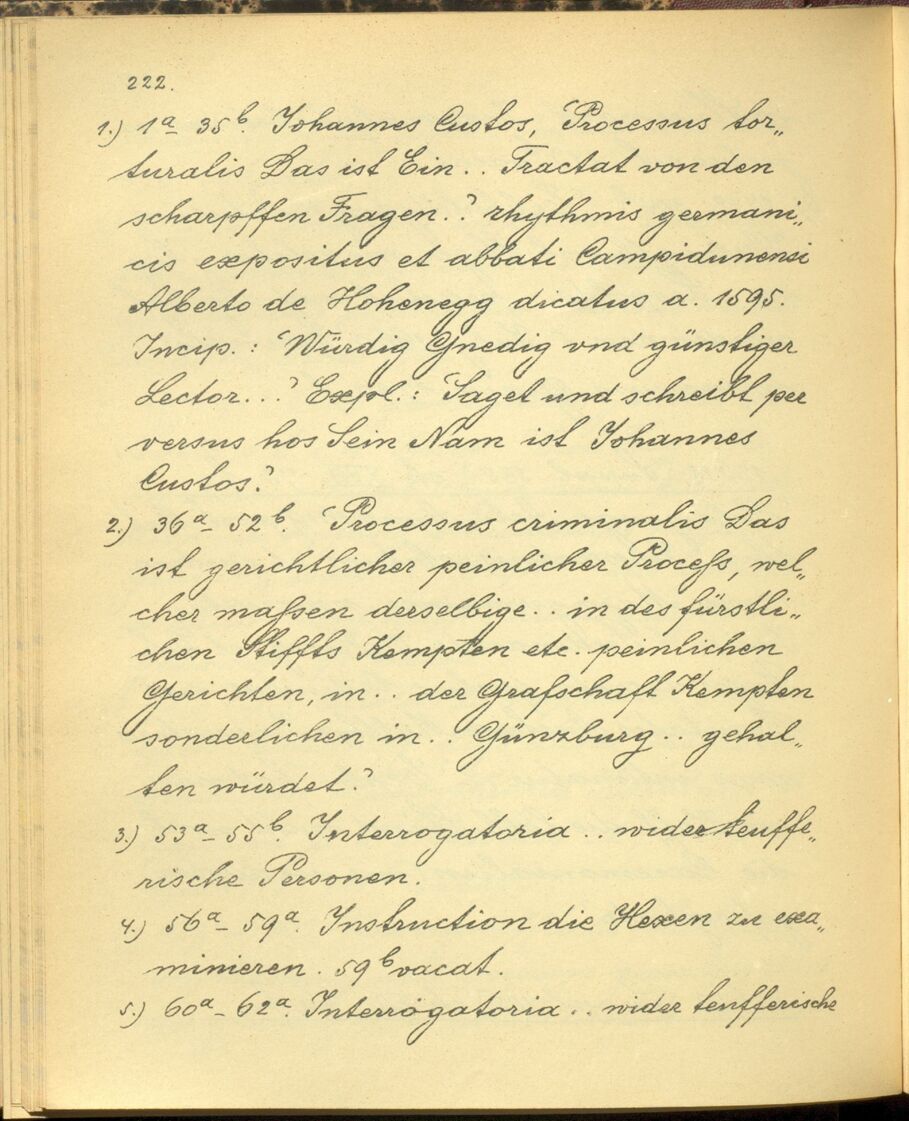 222.
1.) 1a- 35b. Johannes Custos, 'Processus tor„
turalis Das ist Ein . . Tractat von den
scharpffen Fragen . .' rhythmis germani„
cis expositus et abbati Campidunensi
Alberto de Hohenegg dicatus a. 1595.
Incip. : 'Würdig Gnedig vnd günstiger
Lector . . .' Expl. : 'Saget und schreibt per
versus hos Sein Nam ist Johannes
Custos.'
2.) 36a- 52b. 'Processus criminalis Das
ist gerichtlicher peinlicher Proceſs, wel„
cher maſsen derselbige . . in des fürstli„
chen Stiffts Kempten etc. peinlichen
Gerichten, in . . der Grafschaft Kempten
sonderlichen in . . Günzburg . . gehal„
ten würdet.'
3.) 53a- 55b. Interrogatoria . . wider teuffe„
rische Personen.
4.) 56a- 59a. Instruction die Hexen zu exa„
minieren. 59b vacat.
5.) 60a- 62a. Interrogatoria . . wider teufferische